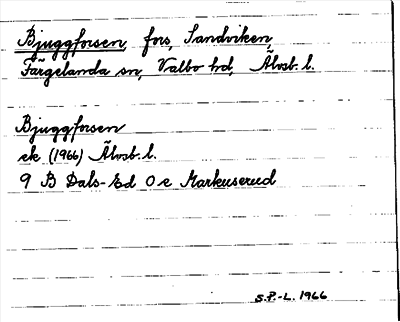 Bjuggforsen, fors, Sandviken,
Färgelanda sn, Valbo hd, Älvsb. l.
Bjuggforsen
ek (1966) Älvsb. l.
9 B Dals-Ed O e Markuserud
S.P.-L. 1966